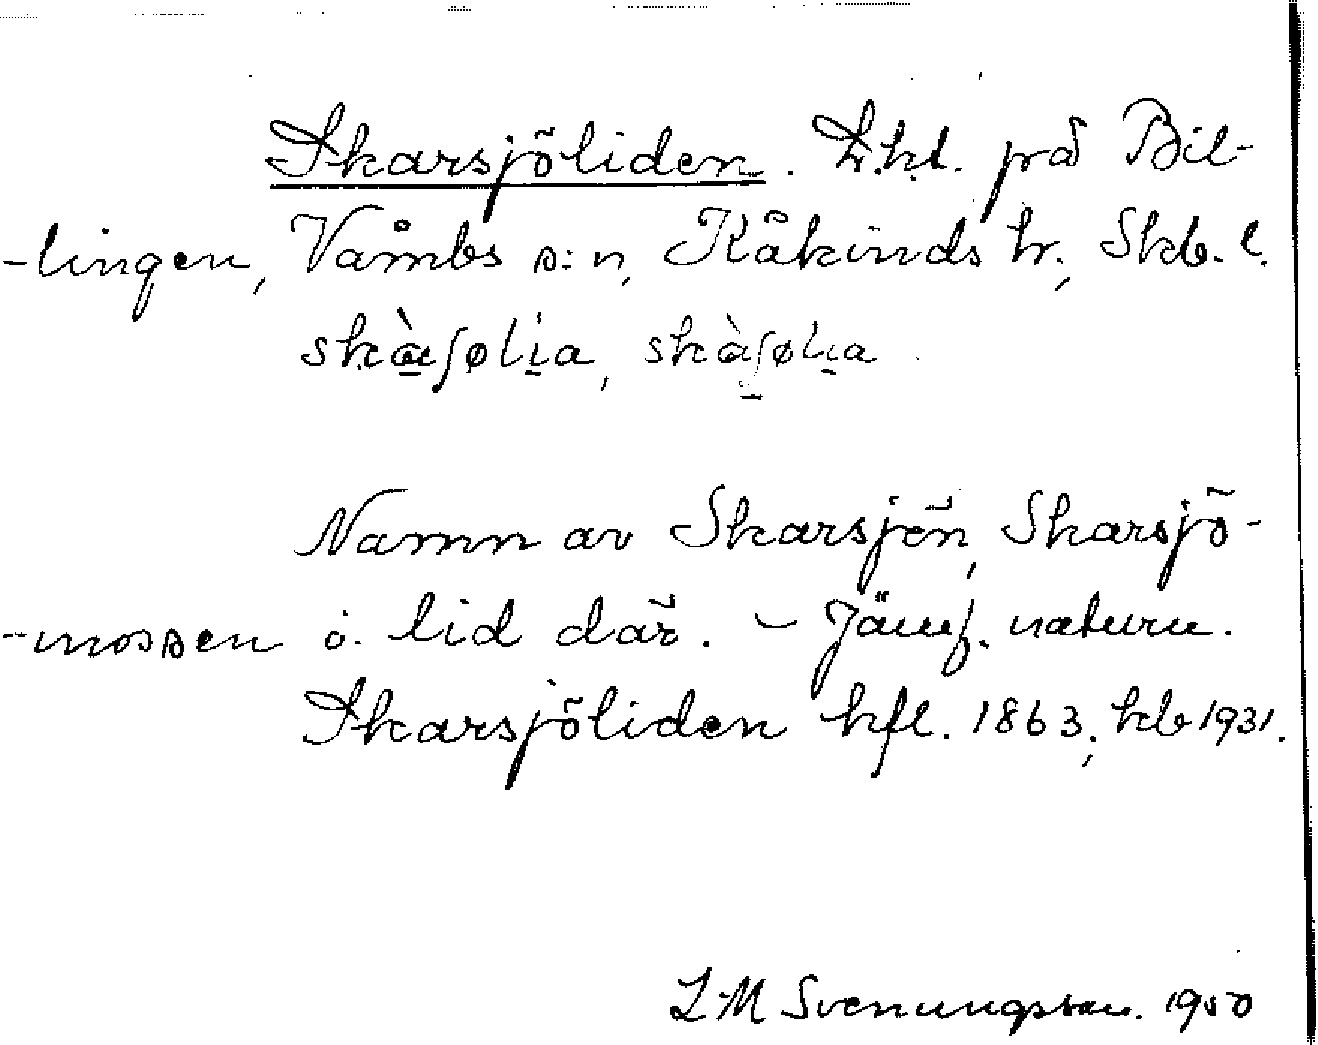 Skarsjöliden. L.ht. på Bil-
-lingen, Våmbs s:n, Kåkinds hr., Skb. l.
skàʃølia, skàʃølia.
Namn av Skarsjön, Skarsjö-
-mossen o. lid där. – Jämf. naturn.
Skarsjöliden hfl. 1863, kb 1931.
L M Svenungsson. 1950